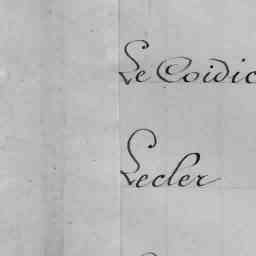 Le Coidic
Lecler